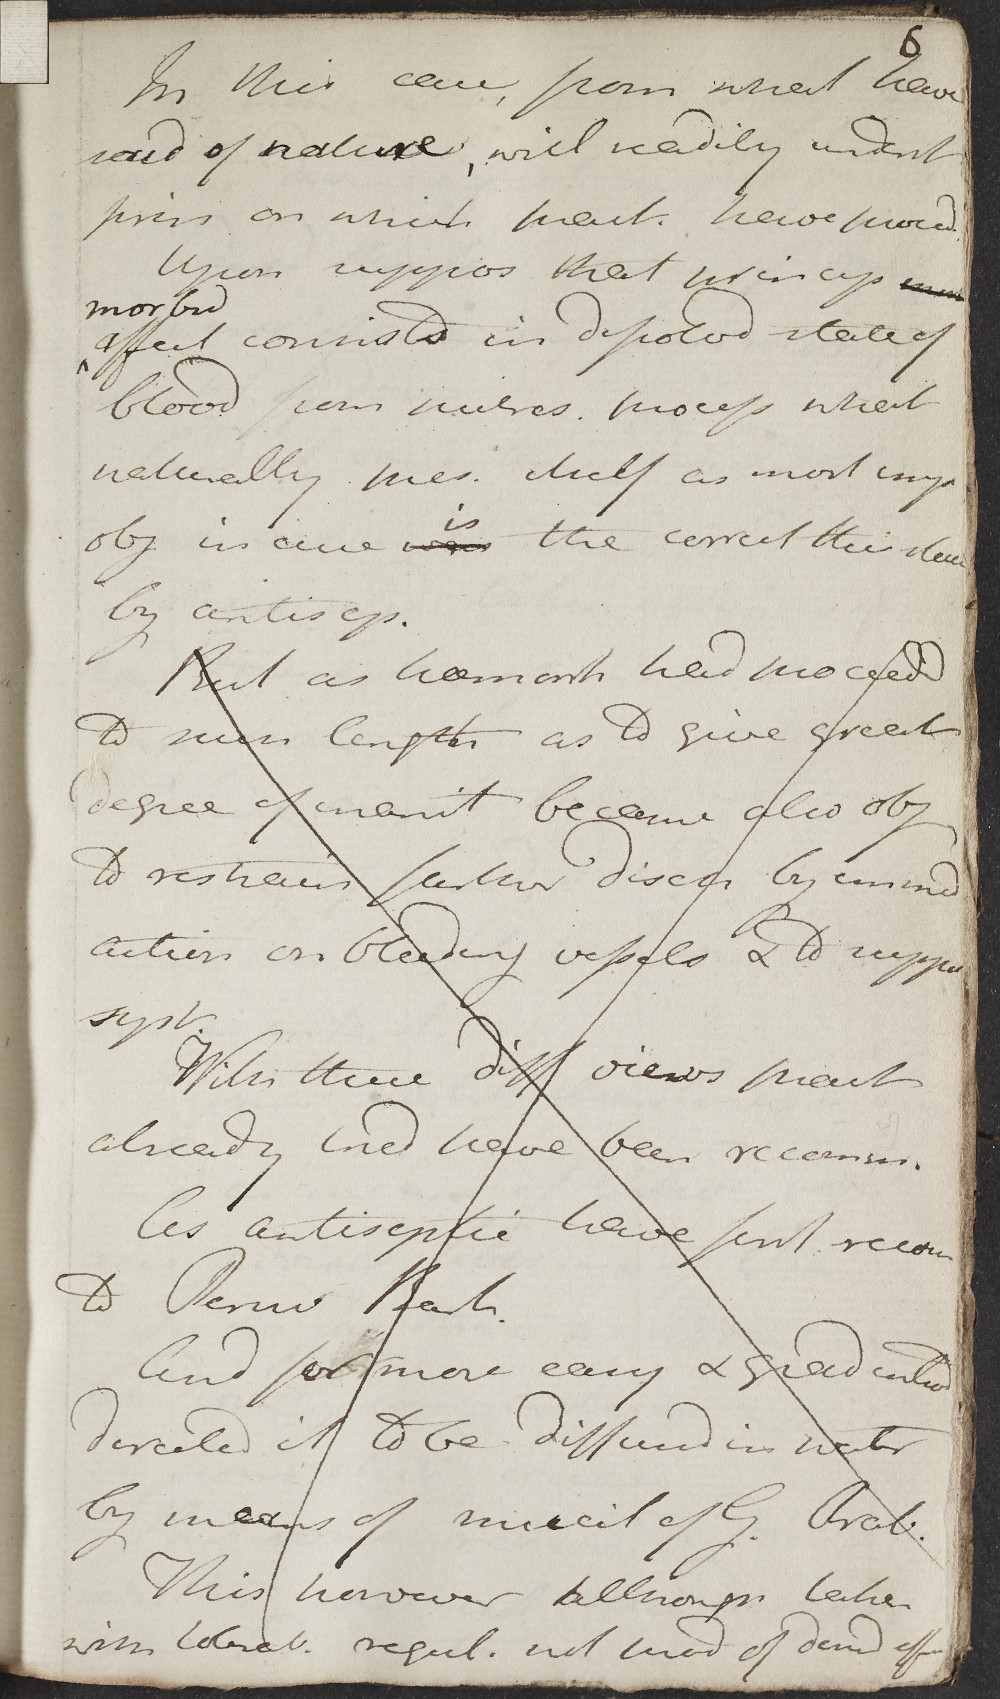 6
In this case, from what have
said of nature, will readily underst
prin on which pract. have proceed.
Upon suppos that princip
morbid
affect consists in dissolved state of
blood from putres. process what
naturally pres. itself as most imp
obj in cure was is the correct this state
by antisep.
But as hæmorrh had proceedd
to such length as to give great
degree of inanit became also obj
to restrain further disch by immed
action on bleeding vessels & to suppor
syst.
With these diff views pract
already tried have been recomm.
As antiseptic have first recom
to Peruv Bark.
And for more easy & grad introd
directed it to be diffused in water
by means of mucil of G. Arab.
This however although taken
with tolerab. regul. not prod of desird effec